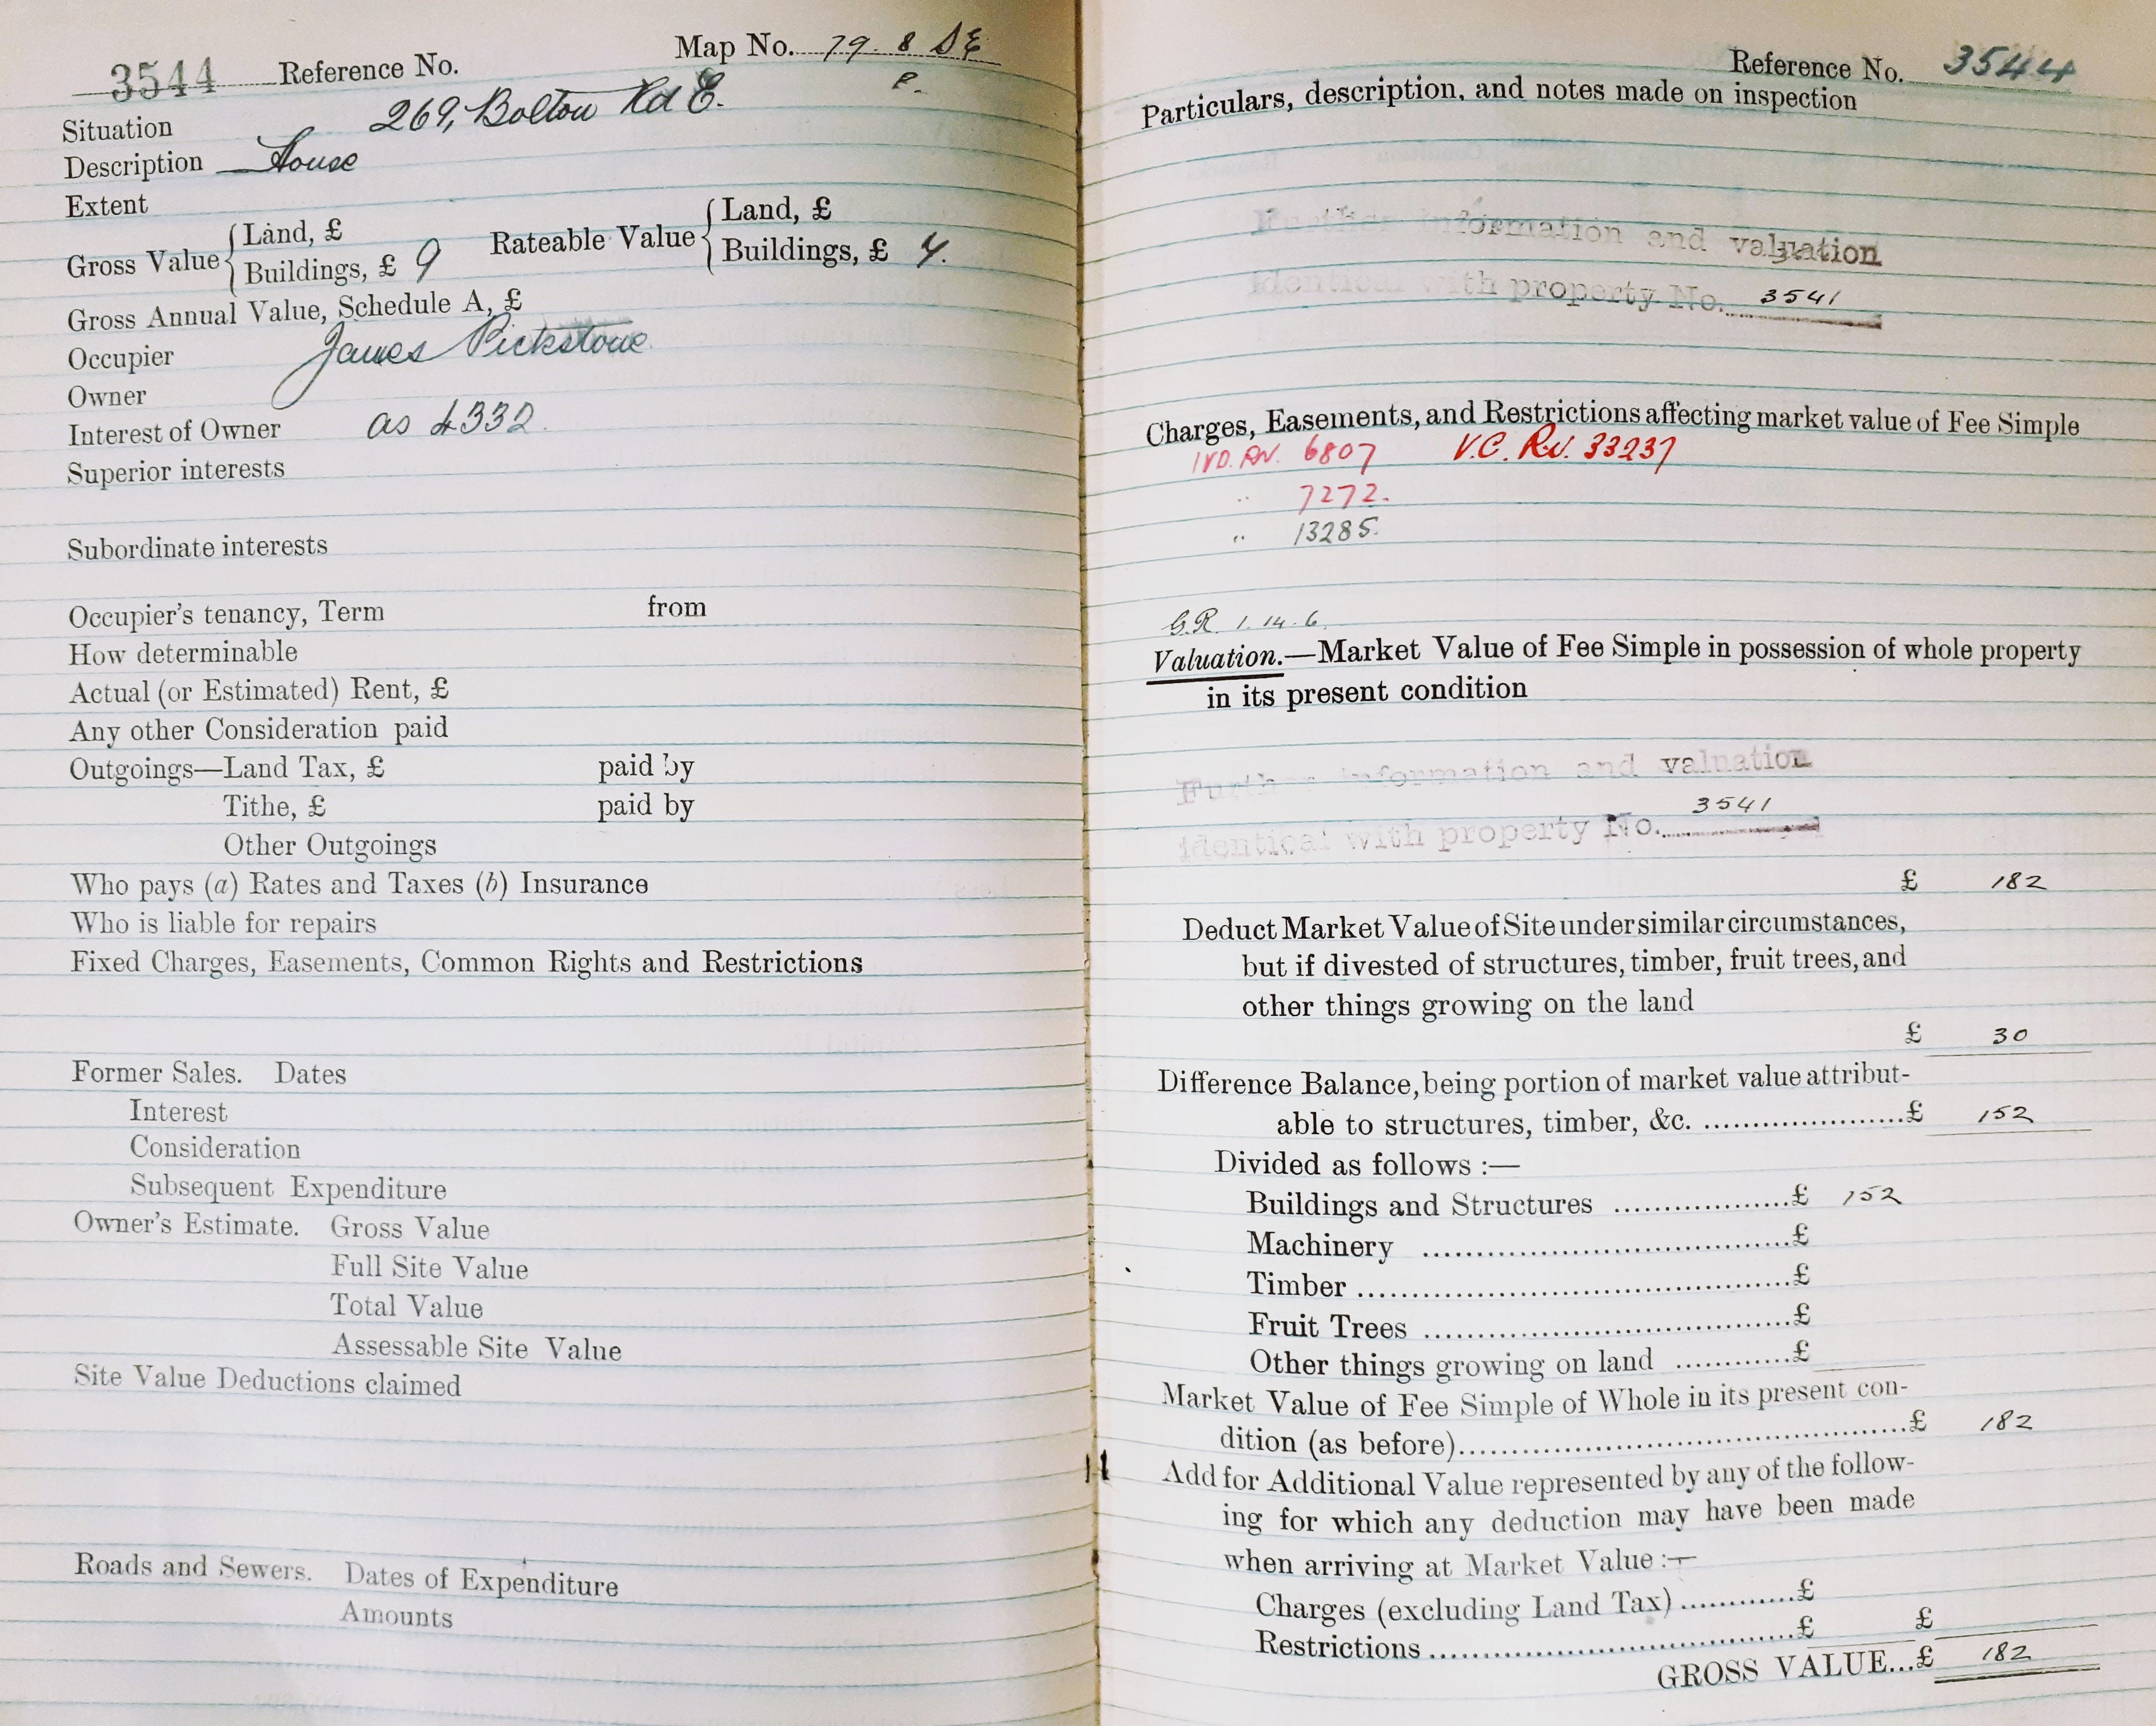 3544 Reference No. Map No. 79. 8 SE
P.
Situation 269, Bolton Rd E.
Description House
Extent
Gross Value { Land, £
Buildings, £ 9
Rateable Value { Land, £
Buildings, £ 4.
Gross Annual Value, Schedule A, £
Occupier James Pickstone
Owner
Interest of Owner as 4332.
Superior interests
Subordinate interests
Occupier's tenancy, Term from
How determinable
Actual (or Estimated) Rent, £
Any other Consideration paid
Outgoings—Land Tax, £ paid by
Tithe, £ paid by
Other Outgoings
Who pays (a) Rates and Taxes (b) Insurance
Who is liable for repairs
Fixed Charges, Easements, Common Rights and Restrictions
Former Sales. Dates
Interest
Consideration
Subsequent Expenditure
Owner's Estimate. Gross Value
Full Site Value
Total Value
Assessable Site Value
Site Value Deductions claimed
Roads and Sewers. Dates of Expenditure
Amounts
Reference No. 3544
Particulars, description, and notes made on inspection
Further information and valuation
identical with property No. 3541
Charges, Easements, and Restrictions affecting market value of Fee Simple
IVD. RV. 6807 V.C. Rv. 33237
.. 7272.
.. 13285.
G.R. 1. 14. 6.
Valuation.—Market Value of Fee Simple in possession of whole property
in its present condition
Further information and valuation
identical with property No. 3541
£ 182
Deduct Market Value of Site under similar circumstances,
but if divested of structures, timber, fruit trees, and
other things growing on the land
£ 30
Difference Balance, being portion of market value attribut-
able to structures, timber, &c. ....................£ 152
Divided as follows :—
Buildings and Structures ..................£ 152
Machinery ......................................£
Timber .............................................£
Fruit Trees ......................................£
Other things growing on land ............£
Market Value of Fee Simple of Whole in its present con-
dition (as before)..............................................£ 182
Add for Additional Value represented by any of the follow-
ing for which any deduction may have been made
when arriving at Market Value :—
Charges (excluding Land Tax) ............£
Restrictions ......................................£ £
GROSS VALUE...£ 182